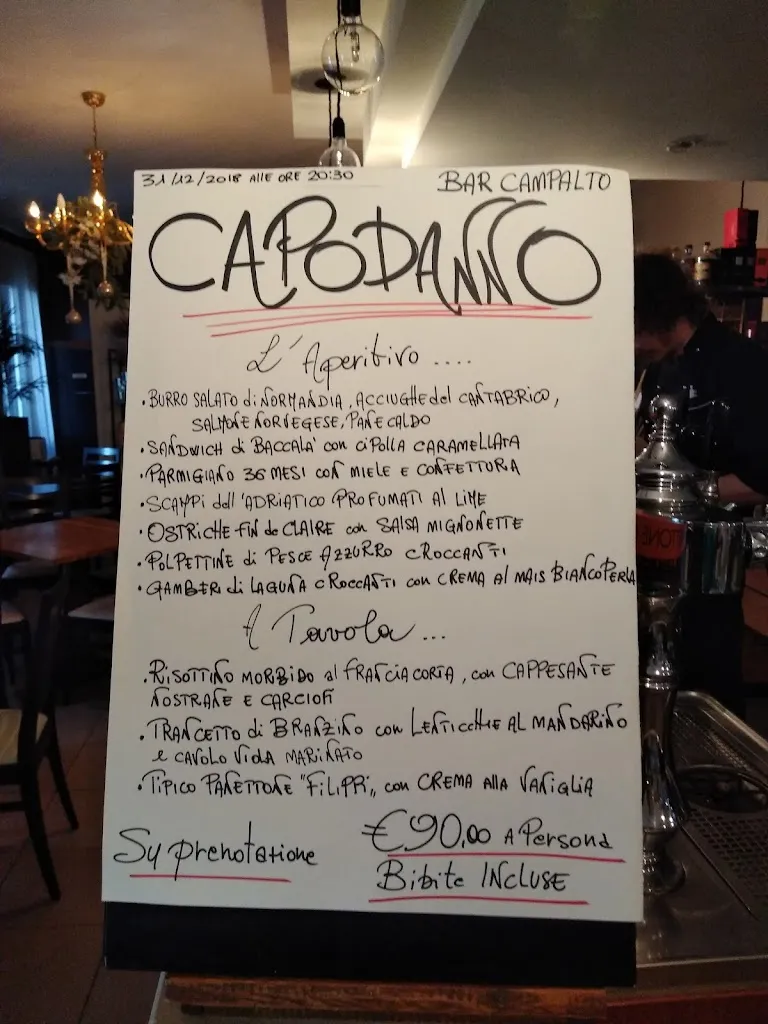 31/12/2018 ALLE ORE 20:30 BAR CAMPALTO
CAPODANNO
L'Aperitivo ....
• BURRO SALATO di NORMANDIA, ACCIUGHE del CANTABRICO,
SALMONE NORVEGESE, PANE CALDO
• SANDWICH di BACCALA' con CIPOLLA CARAMELLATA
• PARMIGIANO 36 MESI CON MIELE E CONFETTURA
• SCAMPI dell'ADRIATICO PROFUMATI AL LIME
• OSTRICHE FIN de CLAIRE con SALSA MIGNONETTE
• POLPETTINE di PESCE AZZURRO CROCCANTI
• GAMBERI di LAGUNA CROCCANTI con CREMA al MAIS BIANCOPERLA
A Tavola ...
• RISOTTINO MORBIDO al FRANCIACORTA, con CAPPESANTE
NOSTRANE E CARCIOFI
• TRANCETTO di BRANZINO con LENTICCHIE AL MANDARINO
e CAVOLO VIOLA MARINATO
• TIPICO PANETTONE "FILIPPI", con CREMA ALLA VANIGLIA
Su prenotazione
€90,00 A Persona
Bibite INCLUSE